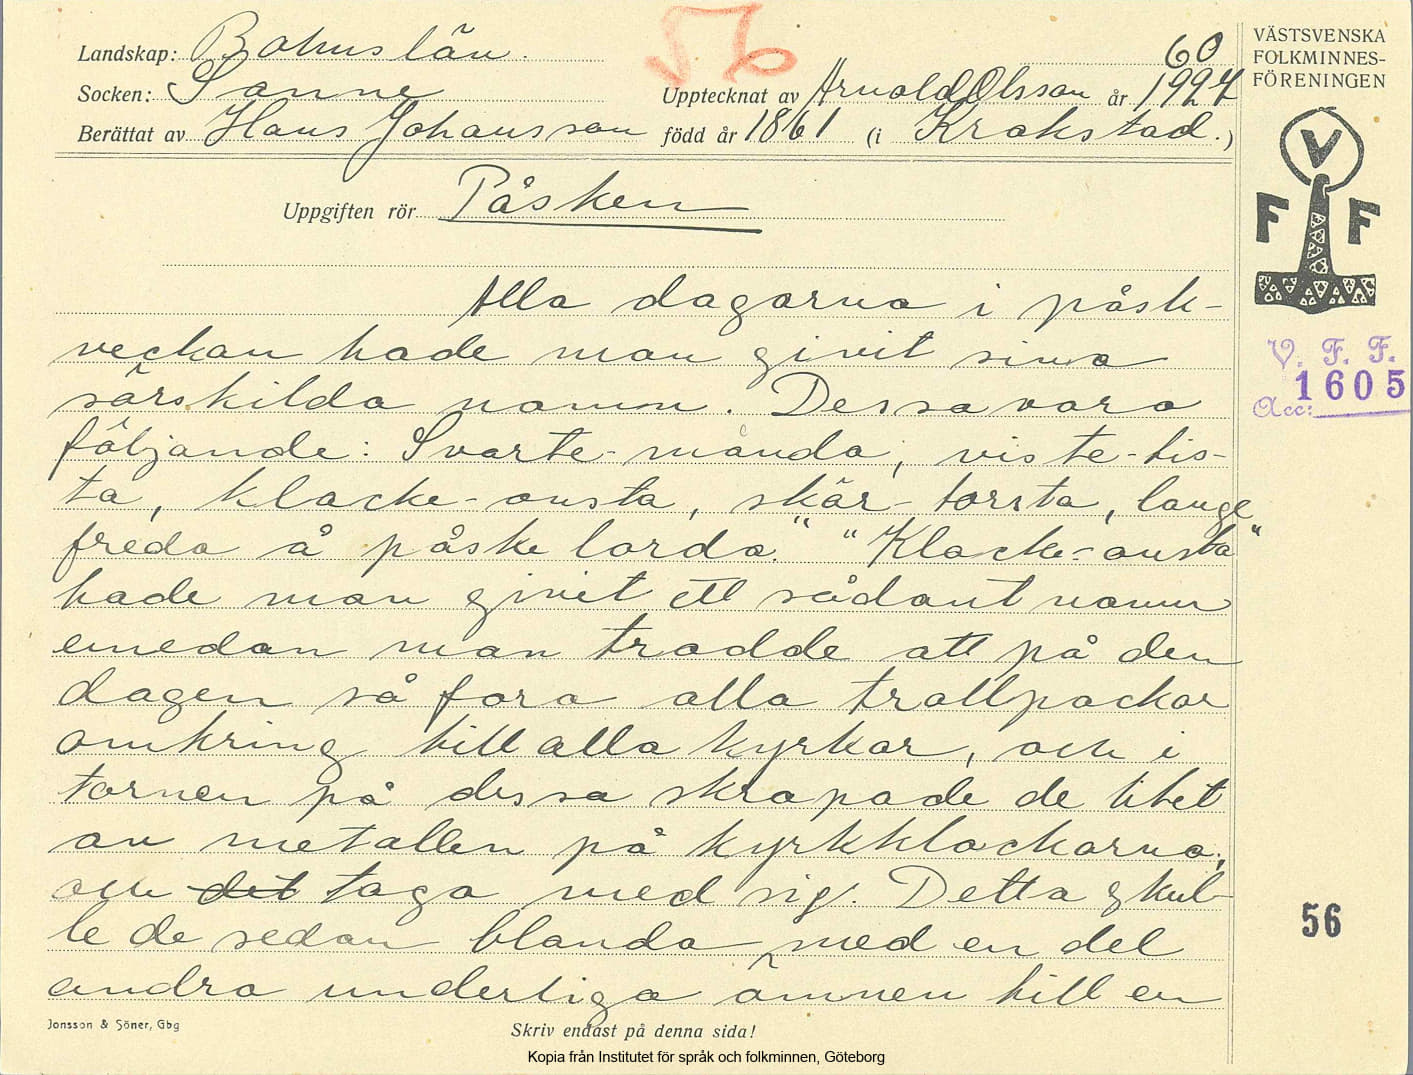 56
Landskap: Bohuslän.
60
VÄSTSVENSKA
FOLKMINNES-
FÖRENINGEN
Socken: Sanne
Upptecknat av Arnold Olsson år 1927
Berättat av Hans Johansson född år 1861 (i Krokstad.)
Uppgiften rör Påsken
V
F F
Alla dagarna i påsk-
veckan hade man givit sina
särskilda namn. Dessa voro
följande: Svarte-månda, viste-tis-
ta, klocke-onsta, skär-torsta, lange
freda å påske lorda." "Klocke-onsta"
hade man givit ett sådant namn
emedan man trodde att på den
dagen så foro alla trollpackor
omkring till alla kyrkor, och i
tornen på dessa skrapade de litet
av metallen på kyrkklockorna,
och det taga med sig. Detta skul-
le de sedan blanda med en del
andra underliga ämnen till en
V. F. F.
1605
Acc:
56
Jonsson & Söner, Gbg
Skriv endast på denna sida!
Kopia från Institutet för språk och folkminnen, Göteborg